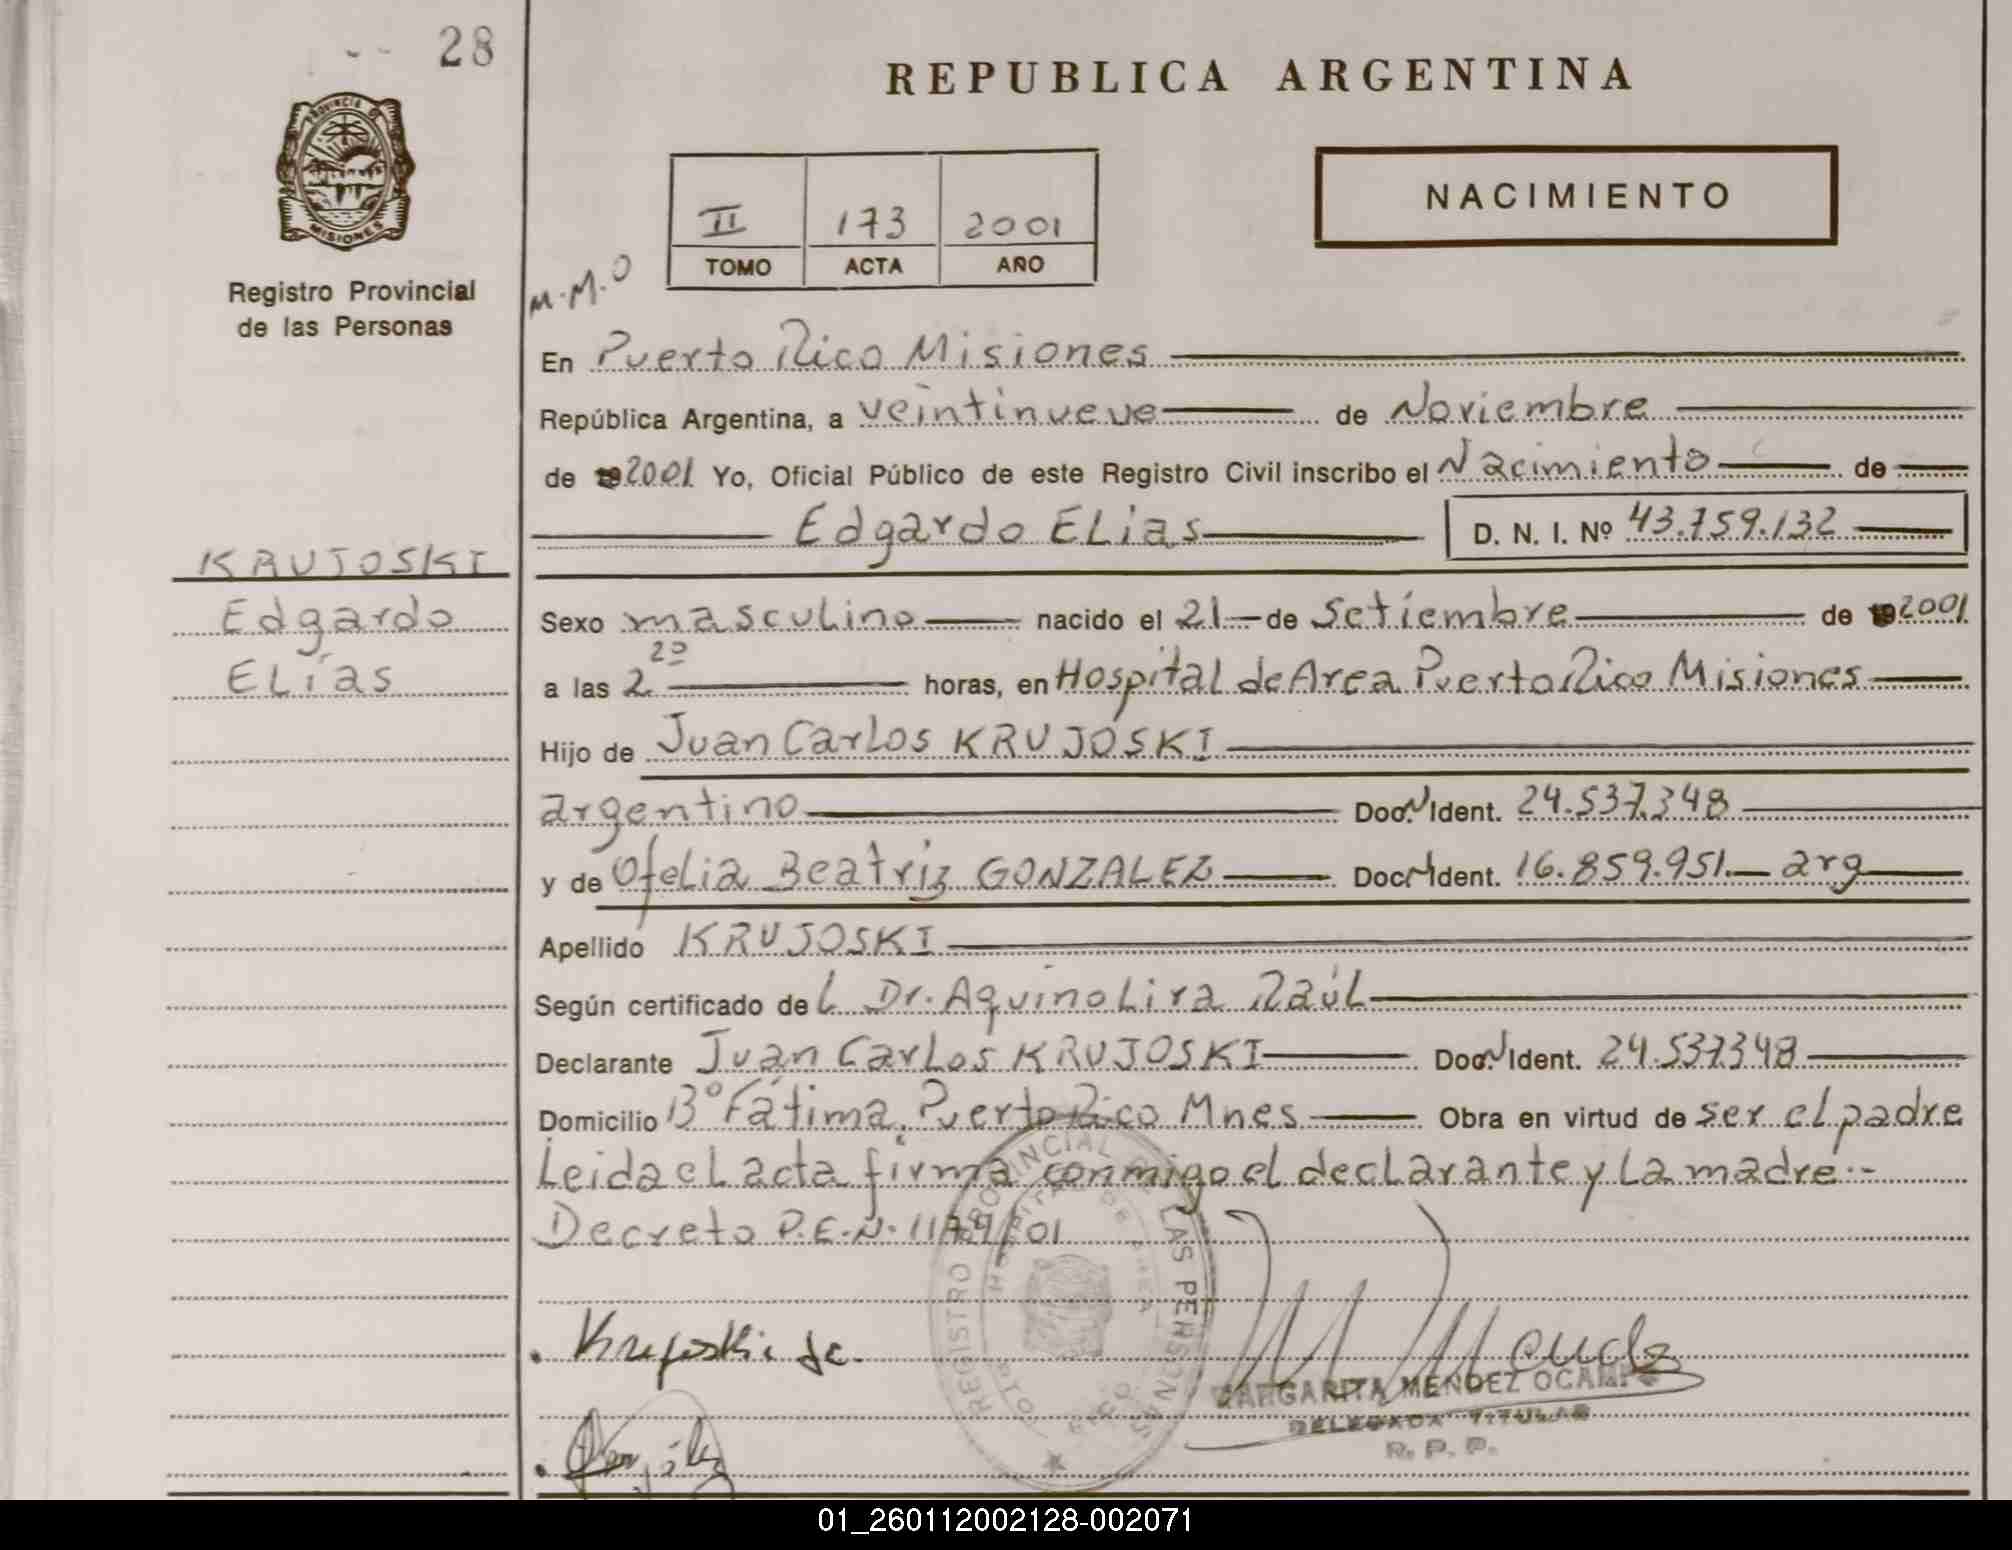 28
REPUBLICA ARGENTINA
PROVINCIA DE
MISIONES
Registro Provincial
de las Personas
II 173 2001
TOMO ACTA AÑO
NACIMIENTO
M.M.O
En Puerto Rico Misiones
República Argentina, a veintinueve de Noviembre
de 2001 Yo, Oficial Público de este Registro Civil inscribo el Nacimiento de
Edgardo ELias D. N. I. Nº 43.759.132
KRUJOSKI
Edgardo
ELías
Sexo masculino nacido el 21 de Setiembre de 2001
a las 2 20 horas, en Hospital de Area Puerto Rico Misiones
Hijo de Juan Carlos KRUJOSKI
argentino Doc. N Ident. 24.537.348
y de Ofelia Beatriz GONZALEZ Doc. N Ident. 16.859.951.— arg
Apellido KRUJOSKI
Según certificado del Dr. Aquino Lira Raúl
Declarante Juan Carlos KRUJOSKI Doc. N Ident. 24.537348
Domicilio Bº Fátima. Puerto Rico Mnes Obra en virtud de ser el padre
Leida el acta firma conmigo el declarante y La madre.-
Decreto P.E.N. 1179/01
REGISTRO PROVINCIAL DE LAS PERSONAS
HOSPITAL DE AREA
PTO. RICO
Krujoski J c.
MARGARITA MENDEZ OCAMPO
DELEGADA TITULAR
R. P. P.
01_260112002128-002071